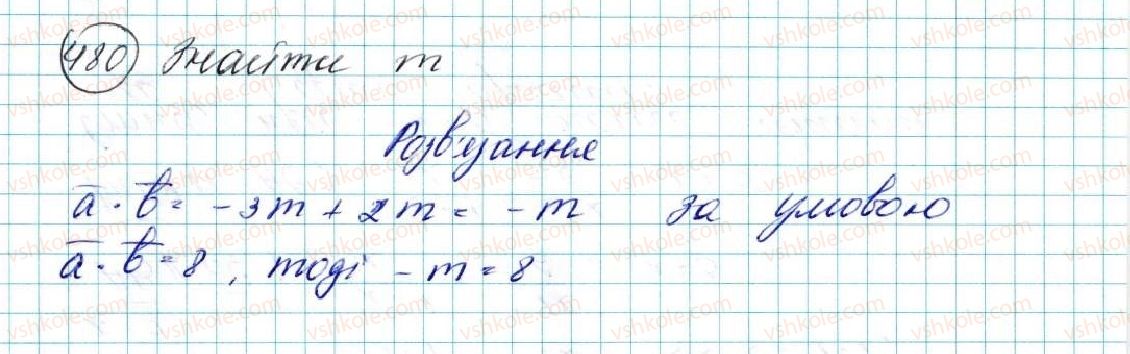 480 Знайти m
Розв'язання
a̅ · b̅ = -3m + 2m = -m за умовою
a̅ · b̅ = 8, тоді -m = 8